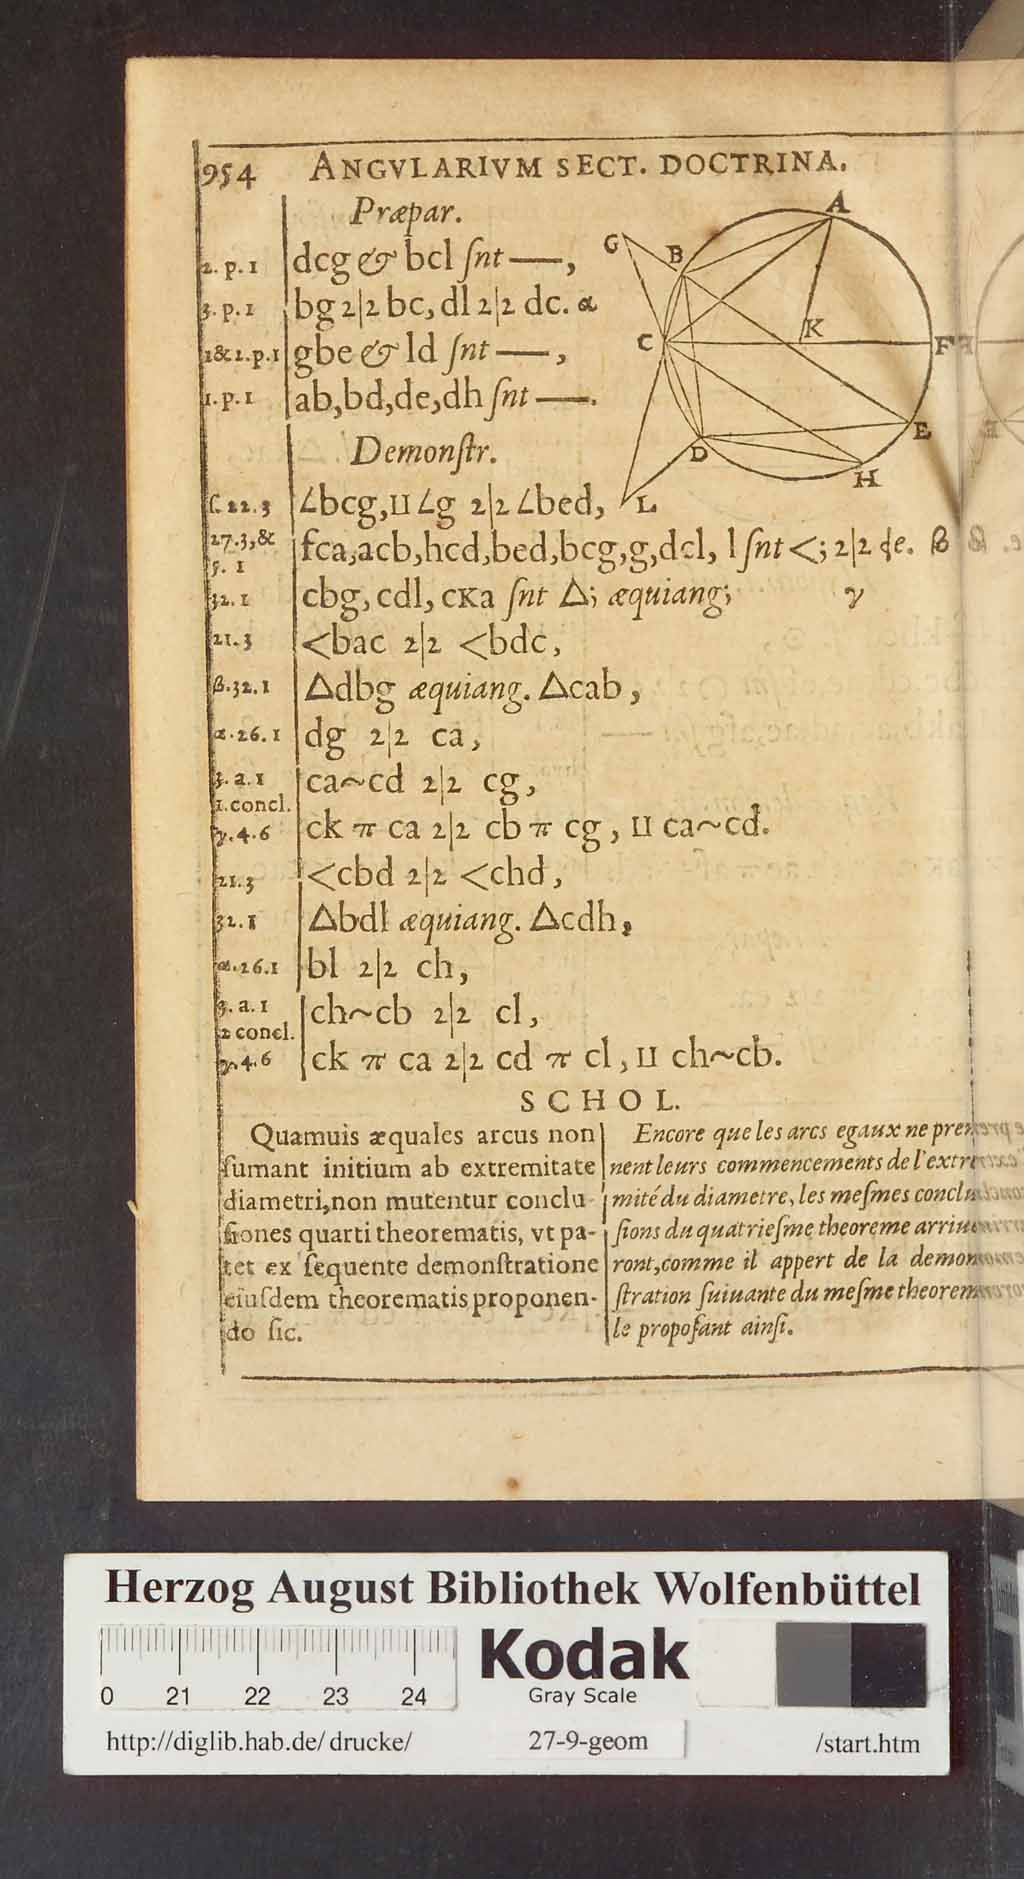 954 ANGVLARIVM SECT. DOCTRINA.
Præpar.
2. p. 1 dcg & bcl ſnt —,
3. p. 1 bg 2|2 bc, dl 2|2 dc. α
1&2. p. 1 gbe & ld ſnt —,
1. p. 1 ab,bd,de,dh ſnt —.
A
G
B
C
K
F
D
E
H
L
Demonſtr.
ſ. 22. 3 ∠bcg, ⊔ ∠g 2|2 ∠bed,
27. 3, & 5. 1 fca,acb,hcd,bed,bcg,g,dcl, l ſnt <; 2|2 de. β
32. 1 cbg, cdl, cKa ſnt △; æquiang; γ
21. 3 <bac 2|2 <bdc,
β. 32. 1 △dbg æquiang. △cab,
α. 26. 1 dg 2|2 ca,
3. a. 1 ca~cd 2|2 cg,
1. concl.
γ. 4. 6 ck π ca 2|2 cb π cg, ⊔ ca~cd.
21. 3 <cbd 2|2 <chd,
32. 1 △bdl æquiang. △cdh,
α. 26. 1 bl 2|2 ch,
3. a. 1 ch~cb 2|2 cl,
2 concl.
γ. 4. 6 ck π ca 2|2 cd π cl, ⊔ ch~cb.
SCHOL.
Quamuis æquales arcus non
ſumant initium ab extremitate
diametri,non mutentur conclu
ſiones quarti theorematis, vt pa-
tet ex ſequente demonſtratione
eiuſdem theorematis proponen-
do ſic.
Encore que les arcs egaux ne pren
nent leurs commencements de l'extre
mité du diametre, les meſmes conclu
ſions du quatrieſme theoreme arriue
ront,comme il appert de la demon
ſtration ſuiuante du meſme theorem
le propoſant ainſi.
Herzog August Bibliothek Wolfenbüttel
0 21 22 23 24
Kodak
Gray Scale
http://diglib.hab.de/drucke/ 27-9-geom /start.htm